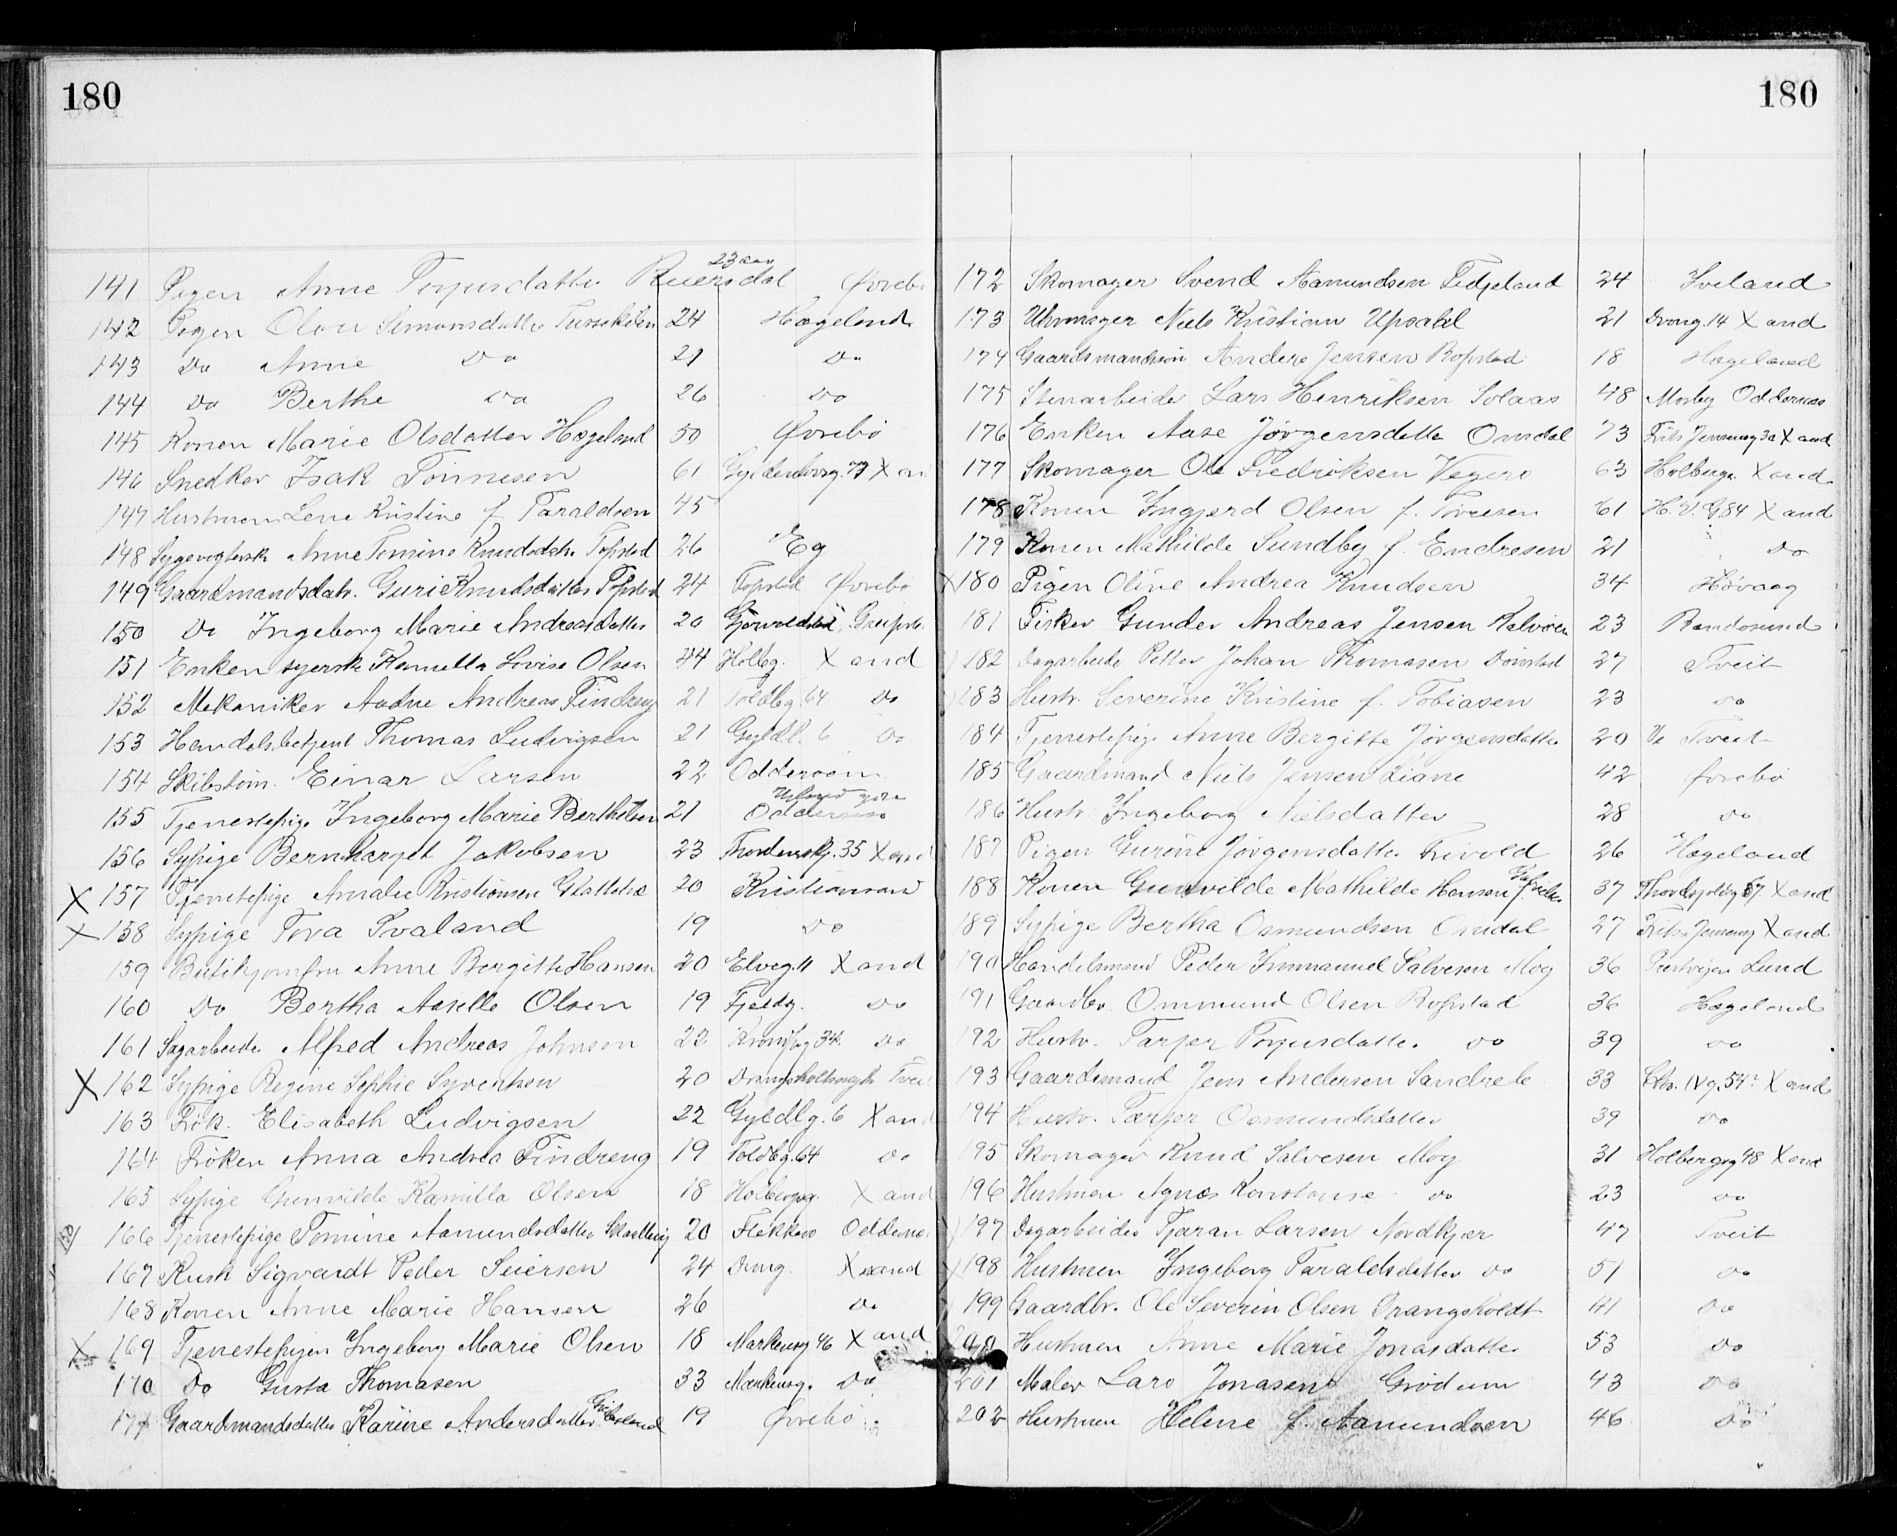 180
23 aar
141 Pigen Anne Torjusdatter Ruensdal Øvrebø
142 Pigen Olou Simonsdatter 24 Hægeland
143 Do Anne Do 21 Do
144 Do Berthe Do 26 Do
145 Konen Marie Olsdatter Hægeland 50 Øvrebø
146 Snedker Isak Tønnesen 61 Gyldenløvesg. 77 X an
147 Hustruen Lene Kristine f. Taraldsen 45
148 Anne Tomine Knudsdatr. Topstad 26 Eg
149 Gaardmandsdatr. Guri Knudsdatter Topstad 24 Topstad Øvrebø
150 Do Ingeborg Marie Andreasdatter 20
151 Enken syersk Kamilla Lovise Olsen 44 Holbg. X and
152 Mekaniker Andreas Findreng 21 Toldbg. 64 Do
153 Handelsbetjent Thomas Ludvigsen 21 Gyldl. 6 Do
154 Skibstøm. Einar Larsen 22 Odderøen
155 Tjenestepige Ingeborg Marie Berthelsen 21 Oddernes
156 Sypige Bernharget Jakobsen 23 Thordenskj. 35 X and
X 157 Tjenestepige Amalie Kristiansen 20 Kristiansand
X 158 Sypige Tova Svaland 19 Do
159 Butikjomfru Anne Bergitte Hansen 20 Elveg. 11 X and
160 Do Bertha Aselle Olsen 19 Fjeldg. Do
161 Sagarbeider Alfred Andreas Johnsen 22 34 Do
X 162 Sypige Regine Sophie Syvertsen 20 Tveit
163 Frøk. Elisabeth Ludvigsen 22 Gyldlg. 6 X and
164 Frøken Anna Andrea Findreng 19 Toldbg. 64 Do
165 Sypige Gunvilde Kamilla Olsen 18 Holbergsg. X and
166 Tjenestepige Tomine Aamundsdatter 20 Flekkerø Oddernes
167 Kusk Sigvardt Peder Seiersen 24 Drng. X sand
168 Konen Anne Marie Hansen 26 Do
X 169 Tjenestepigen Ingeborg Marie Olsen 18 Markensg 46 X and
170 Do Gusta Thomasen 33 Markensg. Do
171 Gaardmandsdatter Karine Andersdatter 19 Øvrebø
180
172 Skomager Svend Aamundsen Fidjeland 24 Iveland
173 Uhrmager Niels Kristian Upsahl 21 Drong. 14 X and
174 Gaardsmandssøn Anders Jensen Ropstad 18 Hægeland
175 Stenarbeider Lars Henriksen Solaas 48 Mosby Oddernes
176 Enken Aase Jørgensdatter Omdal 73 Frits Jensensg 3a X and
177 Skomager Ole Fredriksen Vegero 63 Holbergsg. X and
178 Konen Ingjerd Olsen f. 61 H. V. G. 84 X and
179 Konen Mathilde Sundby f. Endresen 21 Do
X 180 Pigen Oline Andrea Knudsen 34 Høvaag
181 Fisker Gunder Andreas Jensen Kalvøen 23 Randosund
182 Dagarbeider Petter Johan Thomasen Dønstad 27 Tveit
183 Hustr. Severine Kristine f. Tobiasen 23 Do
184 Tjenestepige Anne Bergitte Jørgensdatter 20 Tveit
185 Gaardmand Niels Jensen Liane 42 Øvrebø
186 Hustr. Ingeborg Nielsdatter 28 Do
187 Pigen Gurine Jørgensdatter 26 Hægeland
188 Konen Gunvilde Mathilde Hansen 37 X and
189 Sypige Bertha Osmundsen Omdal 27 Frits Jensensg X and
190 Handelsmand Peder Immanuel Salvesen Moy 36 Lund
191 Gaardbr. Ommund Olsen Ropstad 36 Hægeland
192 Hustr. Tarjer Torjusdatter Do 39 Do
193 Gaardsmand Jens Andersen 33 Chr. IV g. 54 X and
194 Hustr. Tarjer Osmundsdatter 39 Do
195 Skomager Knud Salvesen Moy 31 Holbergsg 48 X and
196 Hustruen Agnes Konstanse Do 23 Do
197 Dagarbeider Tjøran Larsen Nordkjær 47 Tveit
198 Hustruen Ingeborg Taraldsdatter Do 51 Do
199 Gaardbr. Ole Severin Olsen Drangsholdt 41 Do
200 Hustruen Anne Marie Jonasdatter 53 Do
201 Maler Lars Jonasen Grødum 43 Do
202 Hustruen Helene f. Aamundsen 46 Do